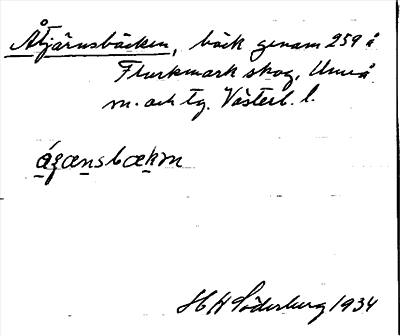 Åtjärnsbäcken, bäck genom 259 å
Flurkmark skog, Umeå
m. och tg. Västerb. l.
ázænsbækm
H Söderberg 1934